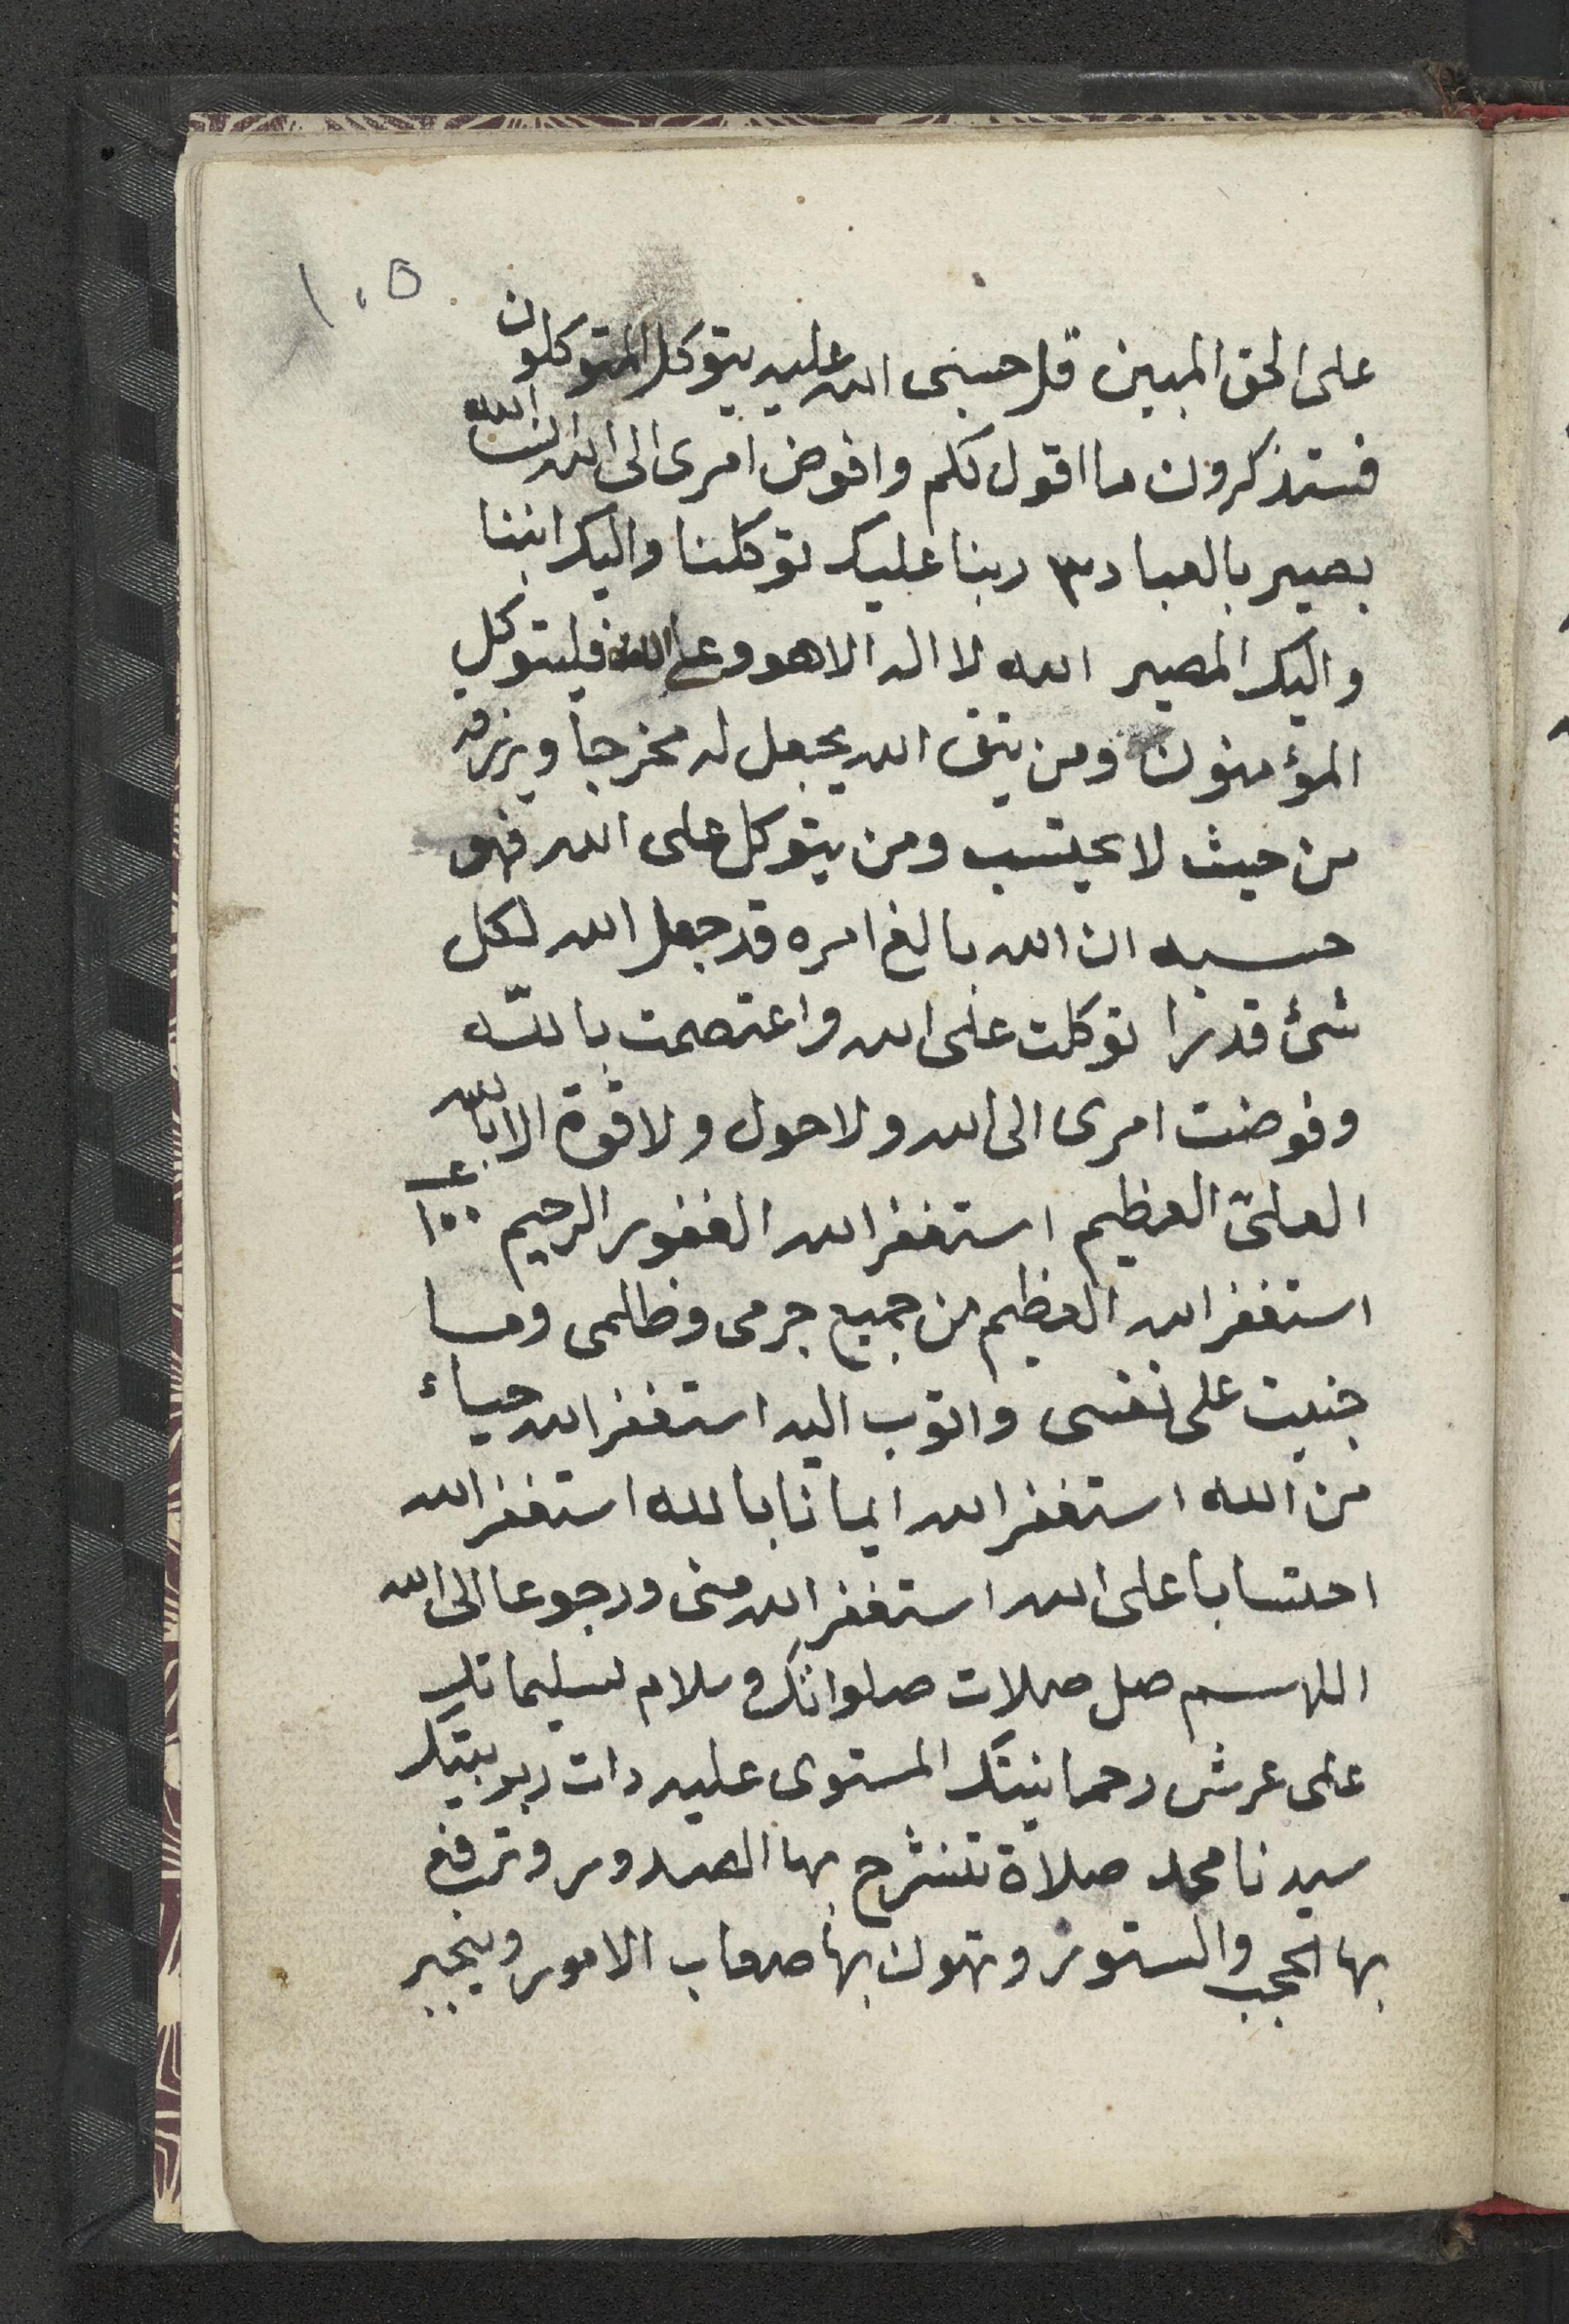 ١٠٥
على الحق المبين قل حسبى الله عليه يتوكل المتوكلون
فستذكرون ما اقول لكم وافوض امرى الى الله ان الله
بصير بالعباد ٣ ربنا عليك توكلنا واليك انبنا
واليك المصير الله لا اله الا هو وعلى الله فليتوكل
المؤمنون ومن يتق الله يجعل له مخرجا ويرزقه
من حيث لا يحتسب ومن يتوكل على الله فهو
حسبه ان الله بالغ امره قد جعل الله لكل
شئ قدرا توكلت على الله واعتصمت بالله
وفوضت امرى الى الله ولا حول ولا قوة الا بالله
العلىّ العظيم استغفر الله الغفور الرحيم ١٠٠
استغفر الله العظيم من جميع جرمى وظلمى وما
جنيت على نفسى واتوب اليه استغفر الله حياء
من الله استغفر الله ايمانا بالله استغفر الله
احتسابا على الله استغفر الله منى ورجوعا الى الله
اللهم صل صلات صلواتك وسلام تسليماتك
على عرش رحمانيتك المستوى عليه ذات ربوبيتك
سيدنا محمد صلاة تنشرح بها الصدور وترفع
بها الحجب والستور وتهون بها صعاب الامور وينجبر